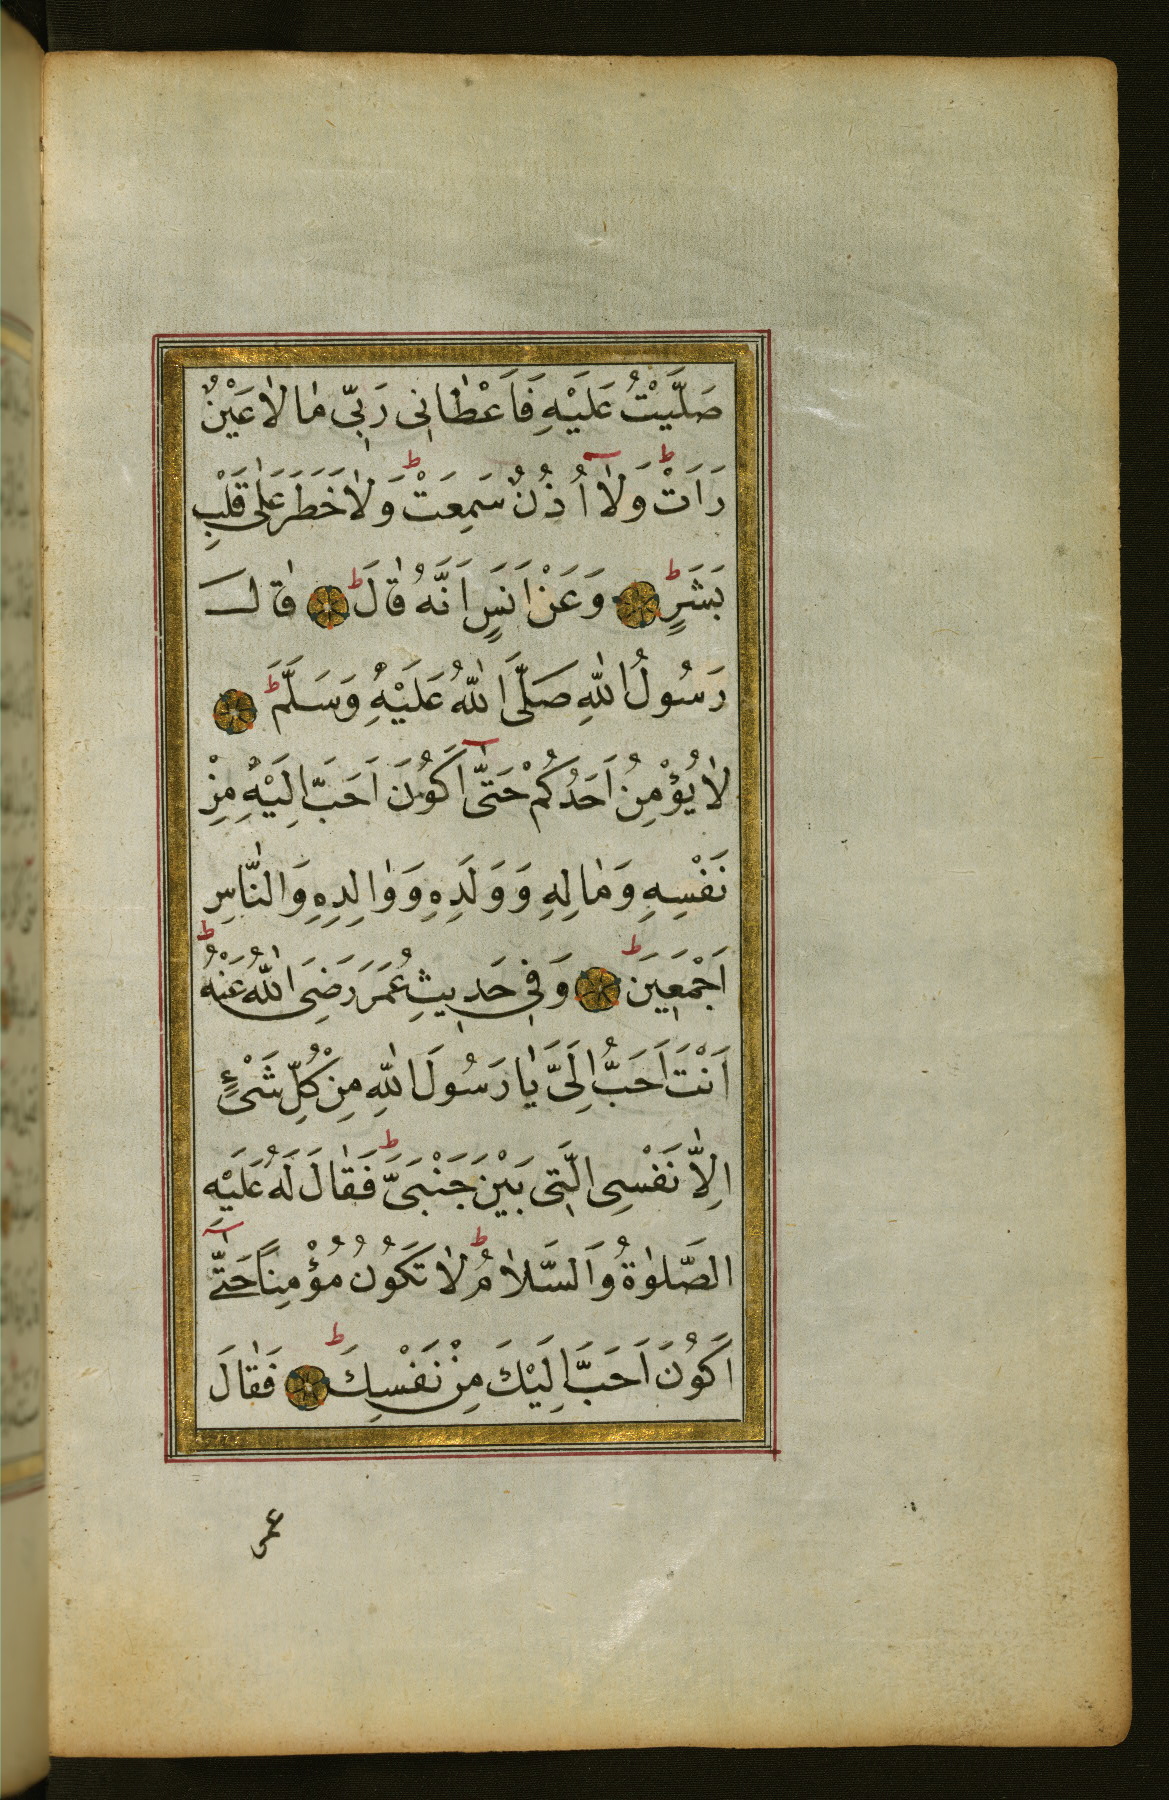 صَلَّيْتُ عَلَيْهِ فَاَعْطَانِى رَبِّى مَا لَا عَيْنٌ
رَاَتْ وَلَا اُذُنٌ سَمِعَتْ وَلَا خَطَرَ عَلٰى قَلْبِ
بَشَرٍ وَعَنْ اَنَسٍ اَنَّهُ قَالَ قَالَ
رَسُولُ اللّٰهِ صَلَّى اللّٰهُ عَلَيْهِ وَسَلَّمَ
لَا يُؤْمِنُ اَحَدُكُمْ حَتّٰى اَكُونَ اَحَبَّ اِلَيْهِ مِنْ
نَفْسِهِ وَمَالِهِ وَوَلَدِهِ وَوَالِدِهِ وَالنَّاسِ
اَجْمَعِينَ وَفِى حَدِيثِ عُمَرَ رَضِىَ اللّٰهُ عَنْهُ
اَنْتَ اَحَبُّ اِلَىَّ يَا رَسُولَ اللّٰهِ مِنْ كُلِّ شَىْءٍ
اِلَّا نَفْسِى الَّتِى بَيْنَ جَنْبَىَّ فَقَالَ لَهُ عَلَيْهِ
الصَّلٰوةُ وَالسَّلَامُ لَا تَكُونُ مُؤْمِنًا حَتّٰى
اَكُونَ اَحَبَّ اِلَيْكَ مِنْ نَفْسِكَ فَقَالَ
عمر